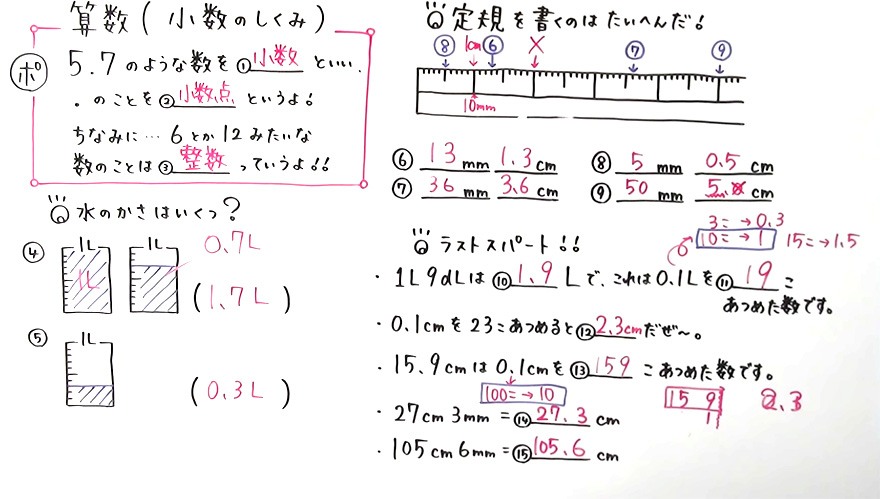 算数(小数のしくみ)
ポ
5.7のような数を①小数といい、
.のことを②小数点というよ!
ちなみに…6とか12みたいな
数のことは③整数っていうよ!!
水のかさはいくつ?
④ 1L 1L 0.7L
1L (1.7L)
⑤ 1L
(0.3L)
定規を書くのはたいへんだ!
⑧ 1cm ⑥ × ⑦ ⑨
10mm
⑥ 13 mm 1.3 cm
⑦ 36 mm 3.6 cm
⑧ 5 mm 0.5 cm
⑨ 50 mm 5. cm
3こ→0.3
ラストスパート!!
10こ→1 15こ→1.5
・1L9dLは⑩1.9Lで、これは0.1Lを⑪19こ
あつめた数です。
・0.1cmを23こあつめると⑫2.3cmだぜ〜。
・15.9cmは0.1cmを⑬159こあつめた数です。
100こ→10
15 9
1
2.3
・27cm3mm=⑭27.3cm
・105cm6mm=⑮105.6cm